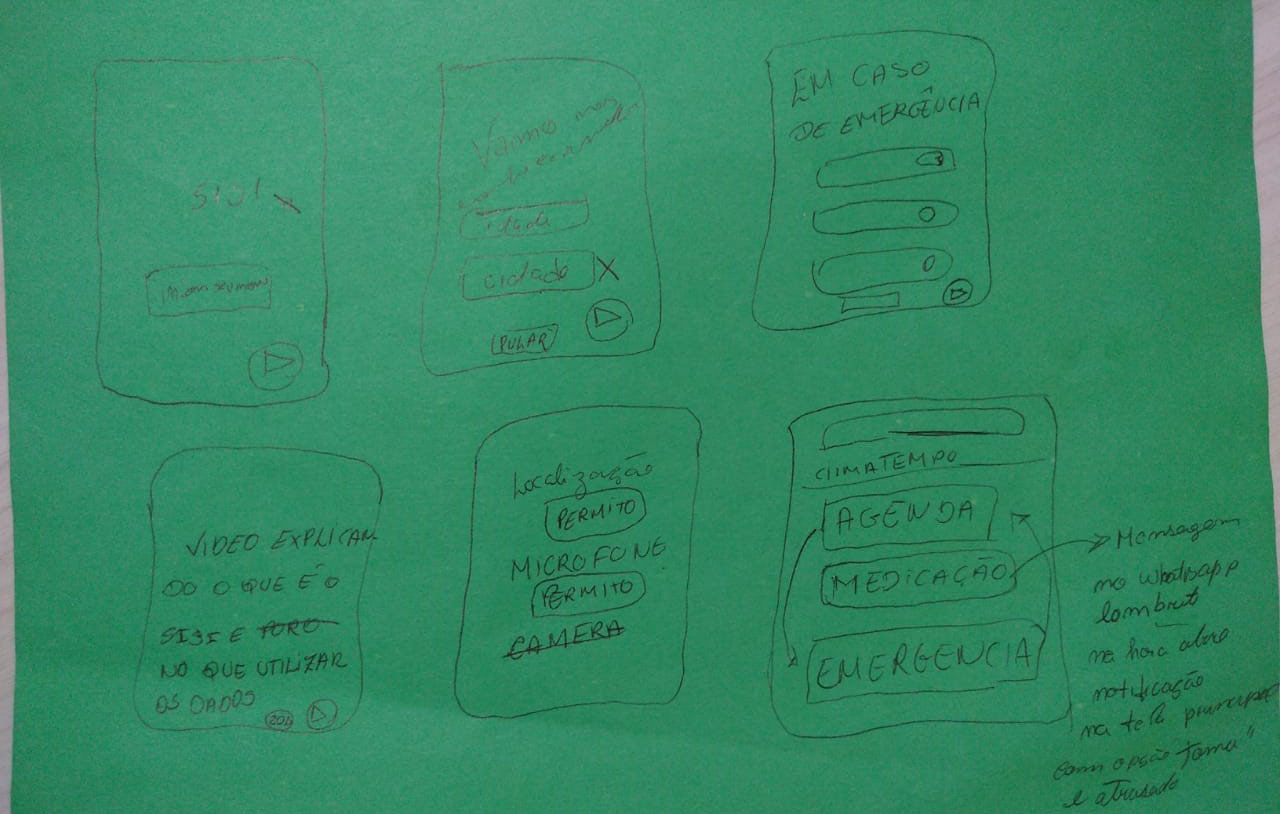 SISI
seu nome
Vamos nos
idade
cidade X
PULAR
EM CASO
DE EMERGÊNCIA
VIDEO EXPLICAN
DO O QUE É O
SISI E
NO QUE UTILIZAR
OS DADOS
Localização
PERMITO
MICROFONE
PERMITO
CAMERA
CLIMATEMPO
AGENDA
MEDICAÇÃO
EMERGENCIA
Mensagem
no whatsapp
lembret
na hora abre
notificação
na tela principal
com opção "tomar"
e atrasado